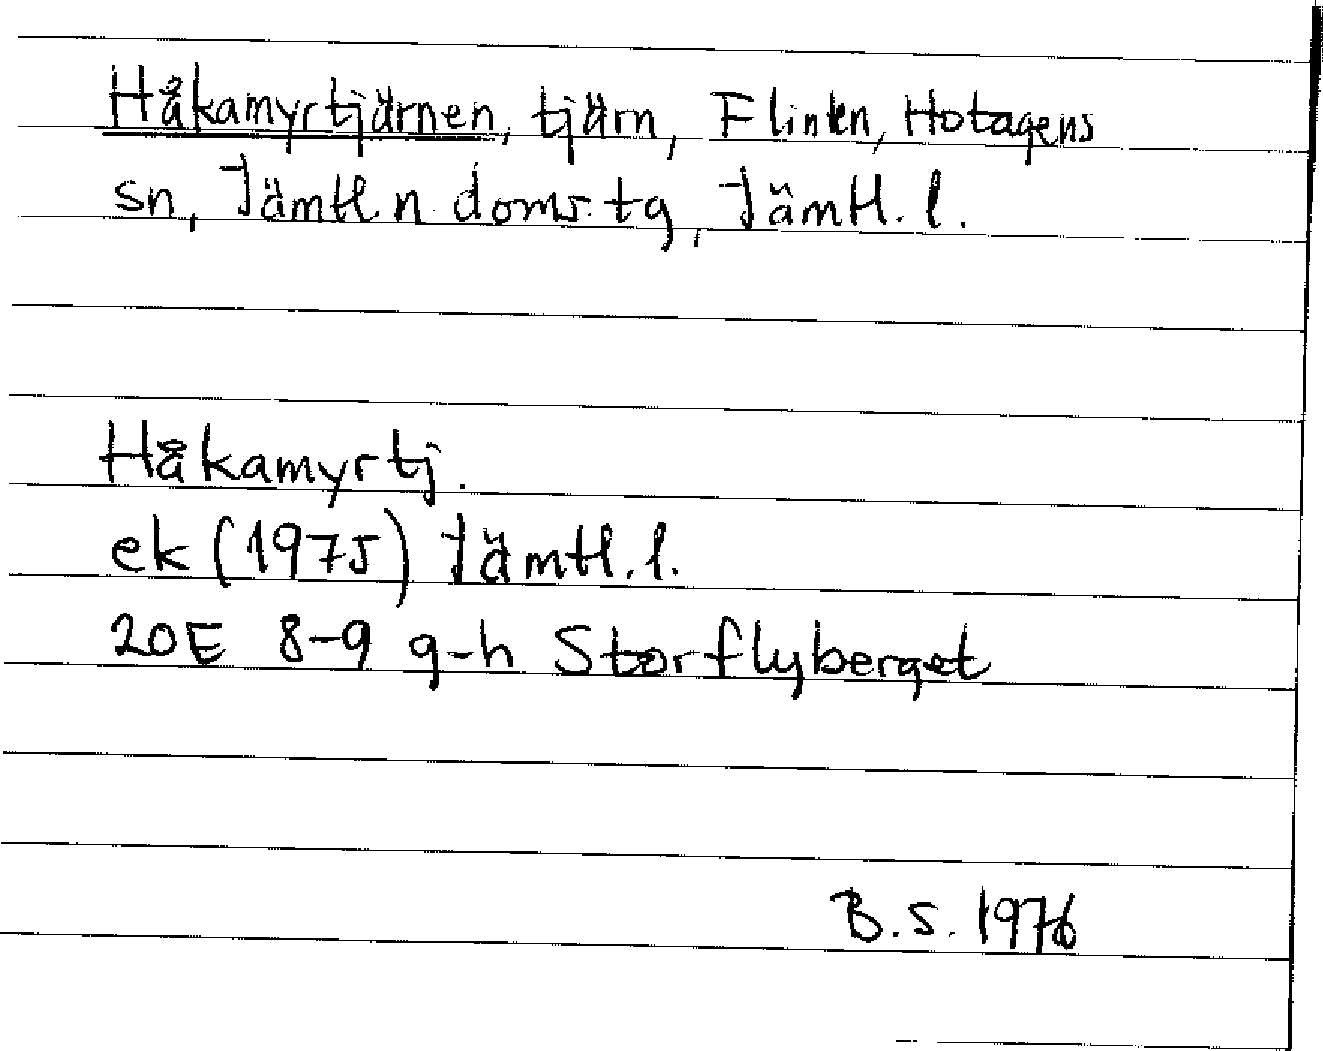 Håkamyrtjärnen, tjärn, Flinten, Hotagens
sn, Jämtl. n. doms. tg, Jämtl. l.
Håkamyrtj.
ek (1975) Jämtl. l.
20E 8-9 g-h Storflyberget
B.S. 1976